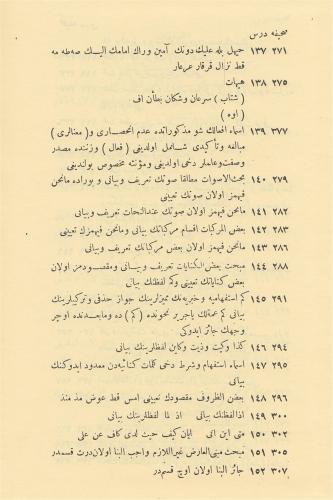 صحيفه درس
٢٧١ ١٣٧ حيهل بله عليك دونك آمين وراك امامك اليك صه طه مه
قط نزال قرقار عرعار
٢٧٥ ١٣٨ هيهات
( شتاب ) سرعان وشكان بطآن اف
( اوه )
٣٧٧ ١٣٩ اسماء افعالك شو مذكوراتده عدم انحصارى و( معناسرى )
مبالغه وتأكيدى شامل اولديغى ( فعال ) وزننده مصدر
وصفت وعلملر دخى اولديغى ومؤنثه مخصوص بولنديغى
٢٧٩ ١٤٠ بحث الاسوات مطلقا صوتك تعريف وبيانى و بوراده مانحن
فيهمز اولان صوتك تعيينى
٢٨٢ ١٤١ مانحن فيهمز اولان صوتك عندالنحات تعريف وبيانى
٢٨٣ ١٤٢ بعض المركبات اقسام مركباتك بيانى ومانحن فيهمزك تعيينى
٢٨٦ ١٤٣ مانحن فيهمز اولان بعض مركباتك تعريف وبيانى
٢٨٨ ١٤٤ مبحث بعض الكنايات تعريف وبيانى ومقصودمز اولان
بعض كناياتك تعيينى وكم لفظنك بيانى
٢٩١ ١٤٥ كم استفهاميه و خبريه نك تميزلرينك جواز حذفى وتركيبلرينك
بيانى كم عمة لك ياجرير نحونده ( كم ) ده ومابعدنده اوچر
وجهك جائز ايدوكى
٢٩٤ ١٤٦ كذا وكيت وذيت وكاين لفظلرينك بيانى
٢٩٥ ١٤٧ اسماء استفهام وشرط دخى كلمات كنائيه دن معدود ايدوكنك
بيانى
٢٩٦ ١٤٨ بعض الظروف مقصودك تعيينى امس قط عوض مذ منذ
٣٠٠ ١٤٩ اذا لفظنك بيانى اذ لما لفظلرينك بيانى
٣٠٢ ١٥٠ متى اين انى ايان كيف حيث لدى كاف عن على
٣٠٥ ١٥١ مبحث مبنى العارض غير اللازم واجب البنا اولان درت قسمدر
٣٠٧ ١٥٢ جائز البنا اولان اوچ قسم در